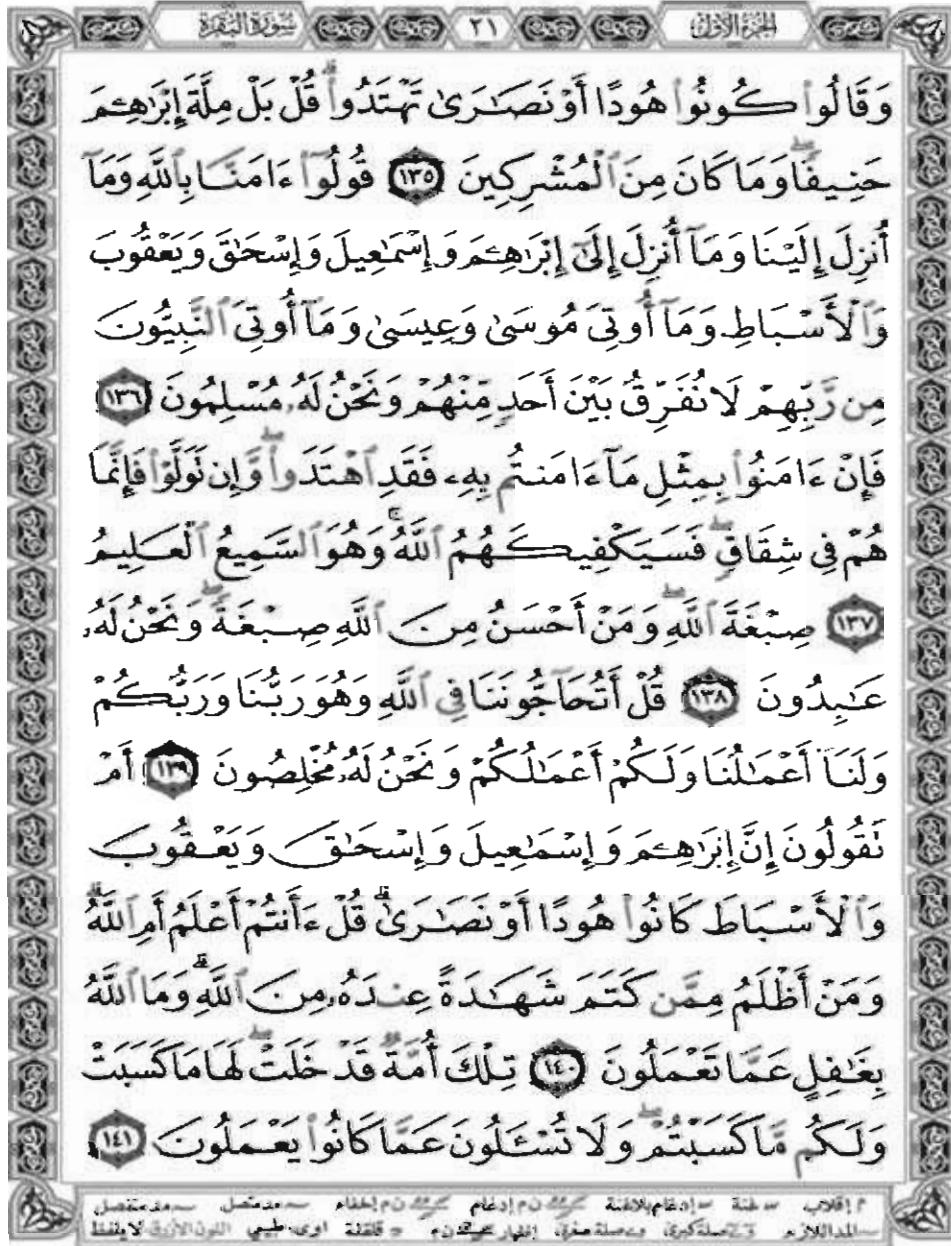 الجزء الأول ٢١ سورة البقرة
وَقَالُوا۟ كُونُوا۟ هُودًا أَوْ نَصَـٰرَىٰ تَهْتَدُوا۟ ۗ قُلْ بَلْ مِلَّةَ إِبْرَٰهِـۧمَ
حَنِيفًا ۖ وَمَا كَانَ مِنَ ٱلْمُشْرِكِينَ ١٣٥ قُولُوٓا۟ ءَامَنَّا بِٱللَّهِ وَمَآ
أُنزِلَ إِلَيْنَا وَمَآ أُنزِلَ إِلَىٰٓ إِبْرَٰهِـۧمَ وَإِسْمَـٰعِيلَ وَإِسْحَـٰقَ وَيَعْقُوبَ
وَٱلْأَسْبَاطِ وَمَآ أُوتِىَ مُوسَىٰ وَعِيسَىٰ وَمَآ أُوتِىَ ٱلنَّبِيُّونَ
مِن رَّبِّهِمْ لَا نُفَرِّقُ بَيْنَ أَحَدٍ مِّنْهُمْ وَنَحْنُ لَهُۥ مُسْلِمُونَ ١٣٦
فَإِنْ ءَامَنُوا۟ بِمِثْلِ مَآ ءَامَنتُم بِهِۦ فَقَدِ ٱهْتَدَوا۟ ۖ وَّإِن تَوَلَّوْا۟ فَإِنَّمَا
هُمْ فِى شِقَاقٍ ۖ فَسَيَكْفِيكَهُمُ ٱللَّهُ ۚ وَهُوَ ٱلسَّمِيعُ ٱلْعَلِيمُ
١٣٧ صِبْغَةَ ٱللَّهِ ۖ وَمَنْ أَحْسَنُ مِنَ ٱللَّهِ صِبْغَةً ۖ وَنَحْنُ لَهُۥ
عَـٰبِدُونَ ١٣٨ قُلْ أَتُحَآجُّونَنَا فِى ٱللَّهِ وَهُوَ رَبُّنَا وَرَبُّكُمْ
وَلَنَآ أَعْمَـٰلُنَا وَلَكُمْ أَعْمَـٰلُكُمْ وَنَحْنُ لَهُۥ مُخْلِصُونَ ١٣٩ أَمْ
تَقُولُونَ إِنَّ إِبْرَٰهِـۧمَ وَإِسْمَـٰعِيلَ وَإِسْحَـٰقَ وَيَعْقُوبَ
وَٱلْأَسْبَاطَ كَانُوا۟ هُودًا أَوْ نَصَـٰرَىٰ ۗ قُلْ ءَأَنتُمْ أَعْلَمُ أَمِ ٱللَّهُ ۗ
وَمَنْ أَظْلَمُ مِمَّن كَتَمَ شَهَـٰدَةً عِندَهُۥ مِنَ ٱللَّهِ ۗ وَمَا ٱللَّهُ
بِغَـٰفِلٍ عَمَّا تَعْمَلُونَ ١٤٠ تِلْكَ أُمَّةٌ قَدْ خَلَتْ ۖ لَهَا مَا كَسَبَتْ
وَلَكُم مَّا كَسَبْتُمْ ۖ وَلَا تُسْـَٔلُونَ عَمَّا كَانُوا۟ يَعْمَلُونَ ١٤١